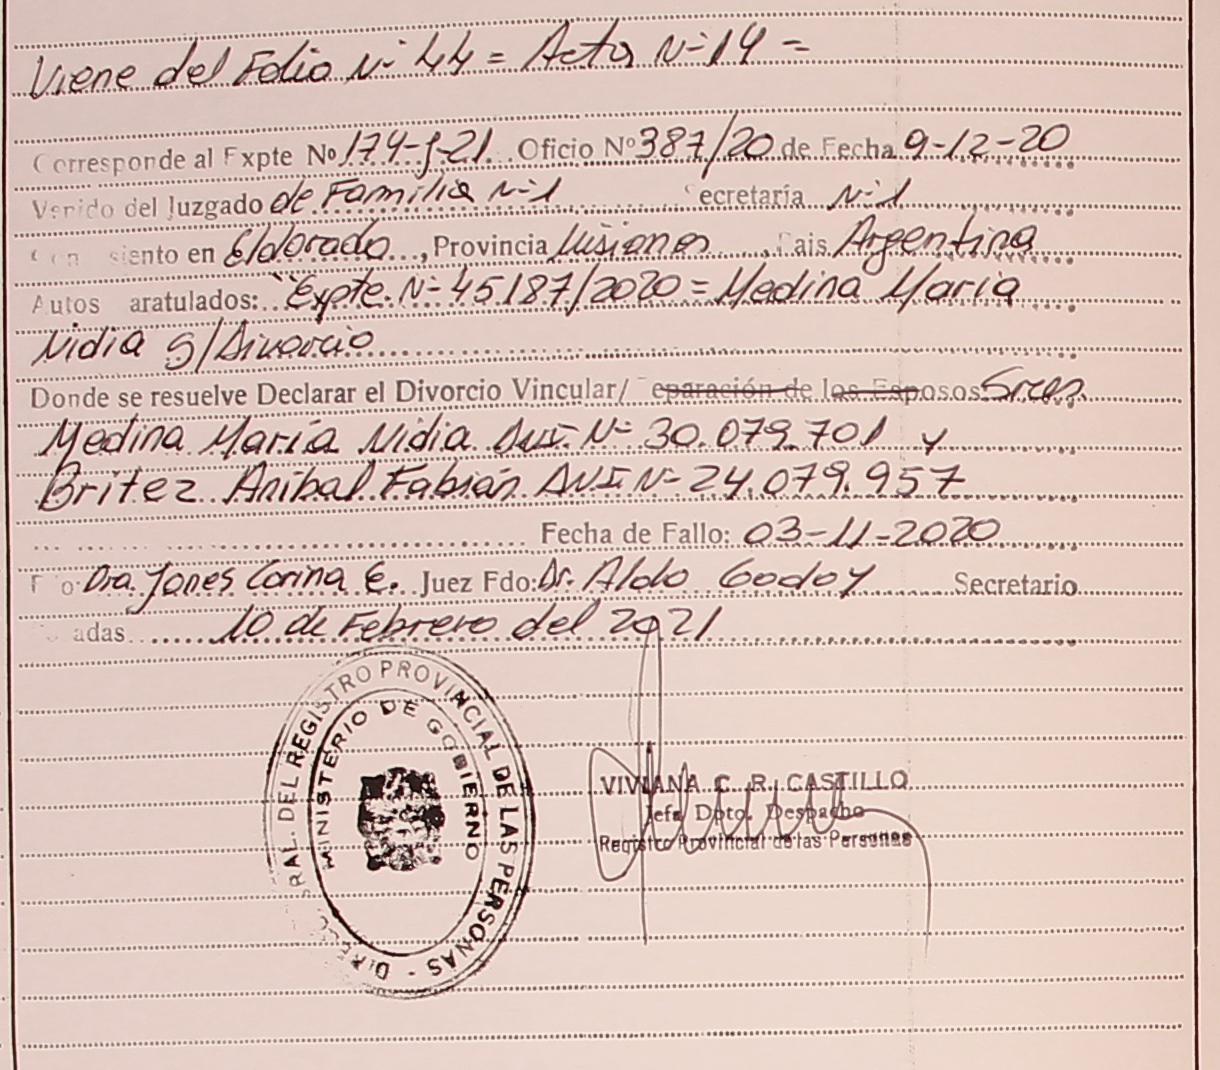 Viene del Folio Nº 44 = Acta Nº 14 =
Corresponde al Expte Nº 174-J-21. Oficio Nº 387/20 de Fecha 9-12-20
Venido del Juzgado de Familia Nº 1 Secretaría Nº 1
Con siento en Eldorado, Provincia Misiones, Pais Argentina
Autos aratulados: "Expte. Nº 45187/2020 = Medina María
Nidia S/Divorcio
Donde se resuelve Declarar el Divorcio Vincular/ eparación de los Esposos Sres.
Medina María Nidia DNI. Nº 30.079.701 y
Britez Aníbal Fabián DNI Nº 24.079.957
Fecha de Fallo: 03-11-2020
Dra. Jones Corina E. Juez Fdo: Dr. Aldo Godoy Secretario
adas 10 de Febrero del 2021
RAL. DEL REGISTRO PROVINCIAL DE LAS PERSONAS - DIREC
MINISTERIO DE GOBIERNO
VIVIANA C. R. CASTILLO
Jefa Dpto. Despacho
Registro Provincial de las Personas